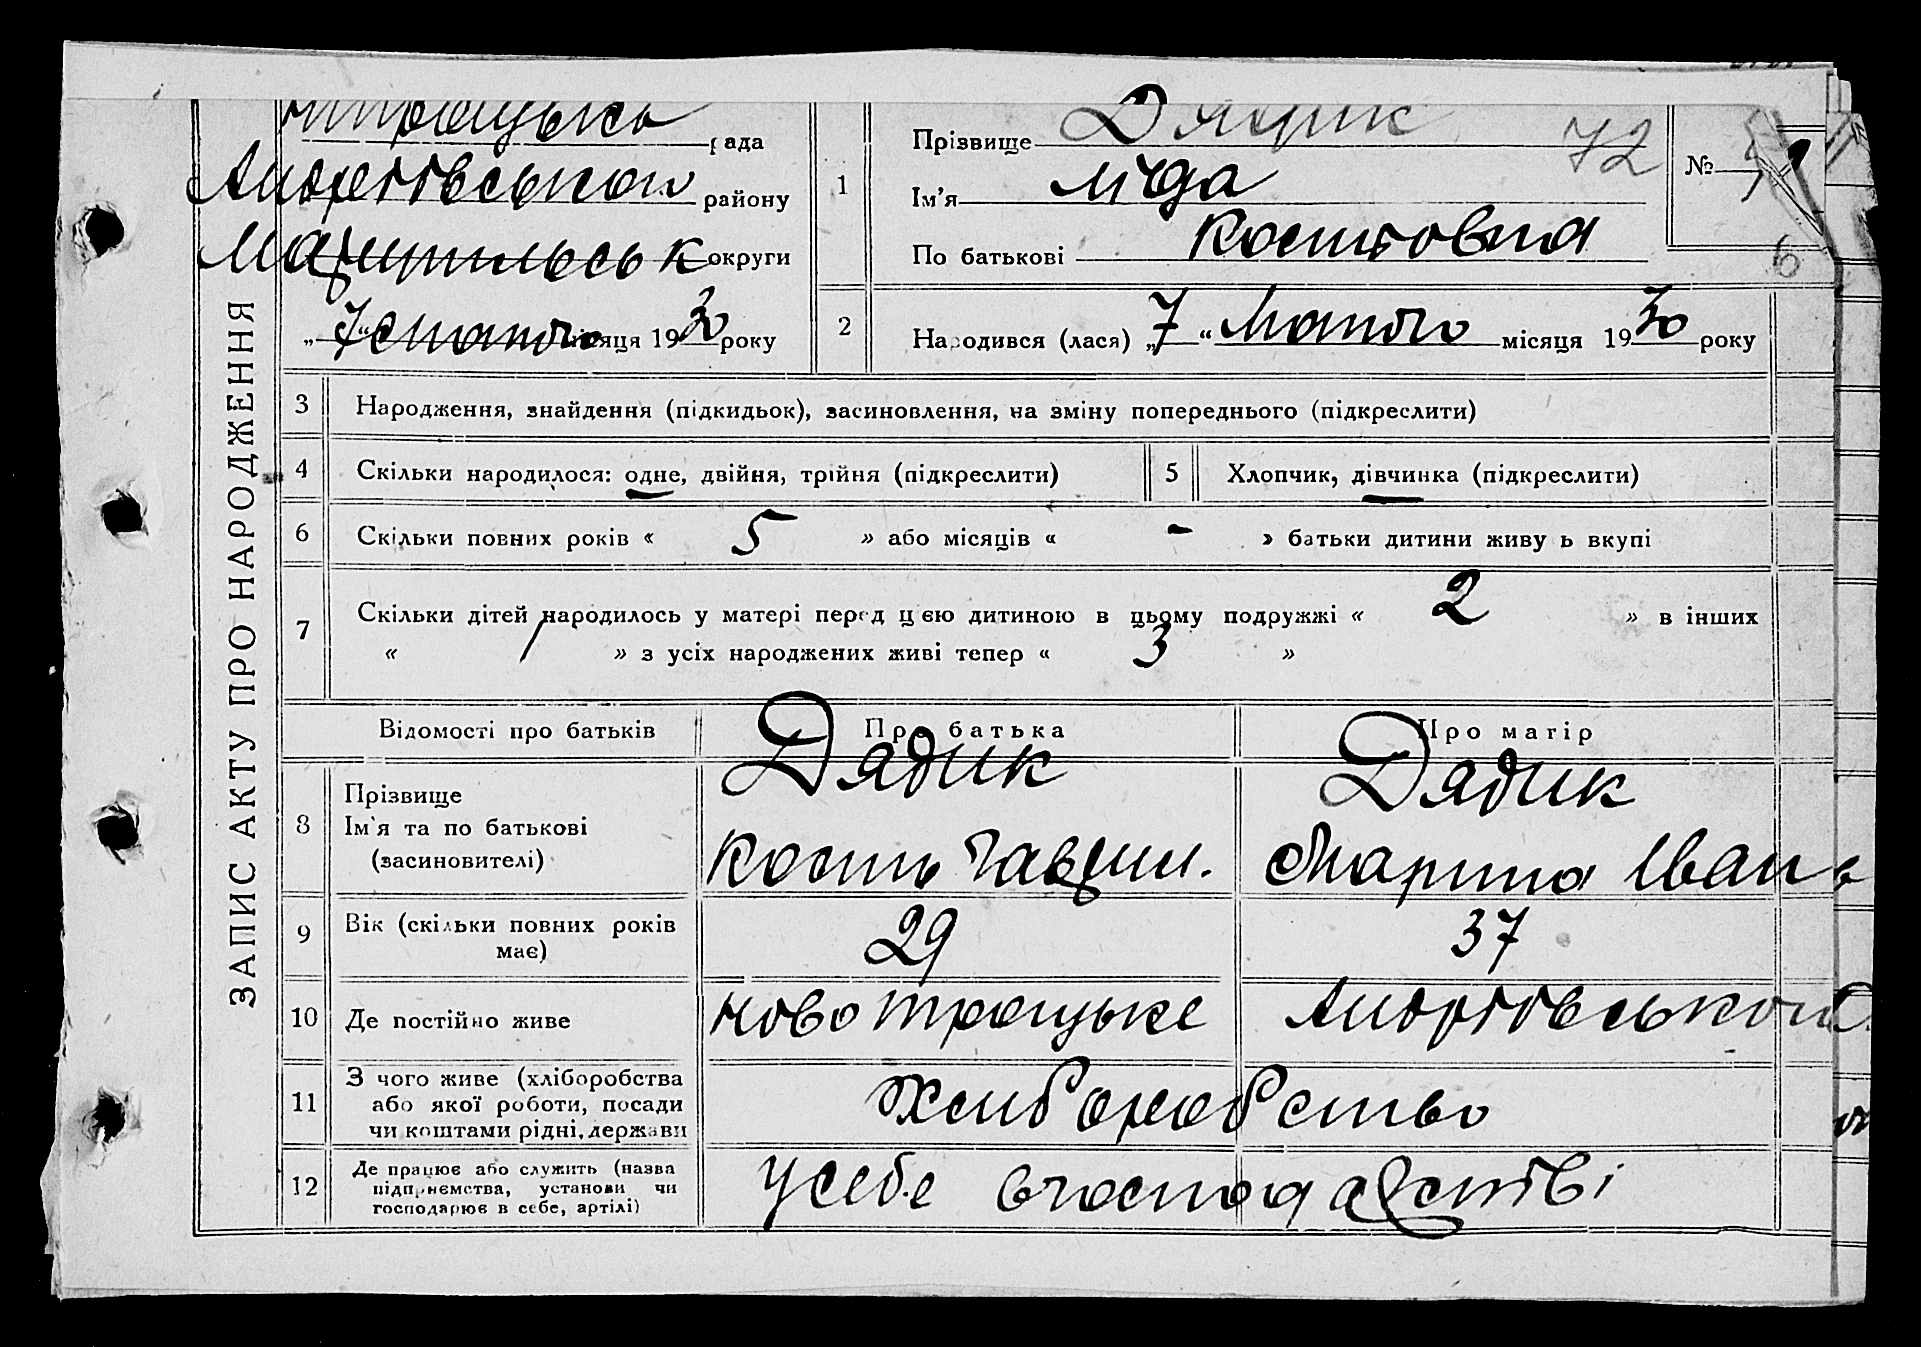 ЗАПИС АКТУ ПРО НАРОДЖЕННЯ
нтроцька рада
Андріївського району
Маріупільськ округи
„7“ Лютого місяця 1930 року
1
Прізвище Дядик
72
№
Ім’я Ліда
По батькові Костівна
6
2
Народився (лася) „7“ Лютого місяця 1930 року
3 Народження, знайдення (підкидьок), засиновлення, на зміну попереднього (підкреслити)
4 Скільки народилося: одне, двійня, трійня (підкреслити)
5 Хлопчик, дівчинка (підкреслити)
6 Скільки повних років « 5 » або місяців « - » батьки дитини живуть вкупі
7 Скільки дітей народилось у матері перед цією дитиною в цьому подружжі « 2 » в інших
« 1 » з усіх народжених живі тепер « 3 »
Відомості про батьків
Про батька
Про матір
8
Прізвище
Ім’я та по батькові
(засиновителі)
Дядик
Кость Гаври.
Дядик
Марина Іван
9
Вік (скільки повних років
має)
29
37
10 Де постійно живе
Ново троцьке Андріївського
11
З чого живе (хліборобства
або якої роботи, посади
чи коштами рідні, держави
Хліборобство
12
Де працює або служить (назва
підприємства, установи чи
господарює в себе, артілі)
У себе в господарстві